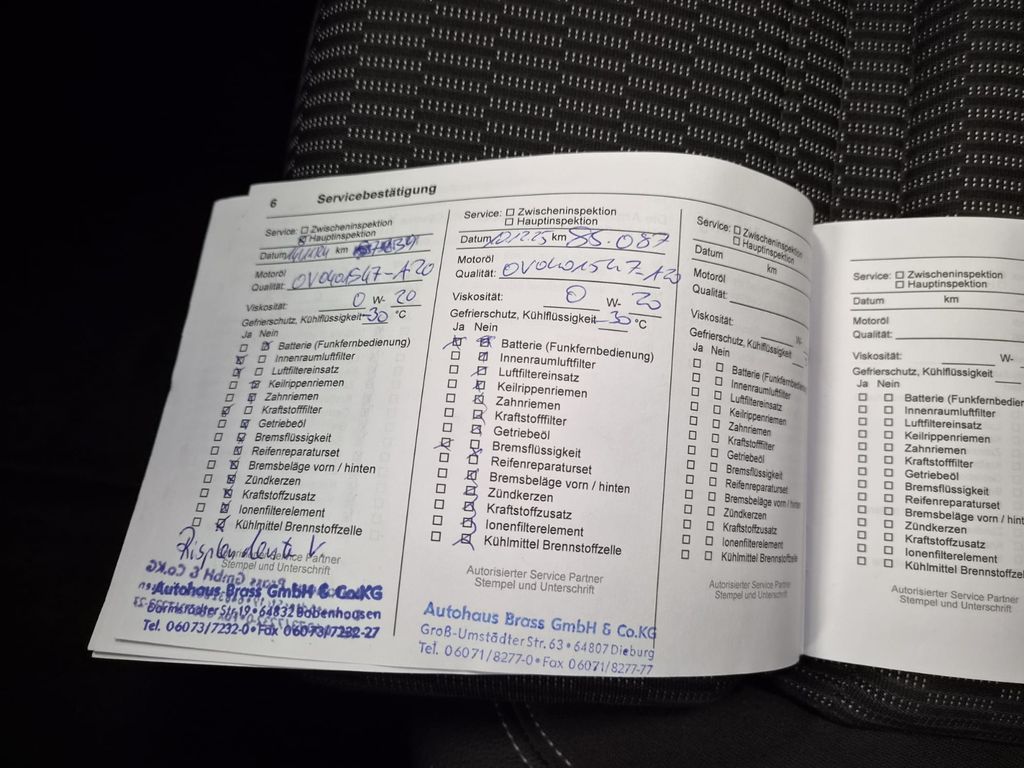 6 Servicebestätigung
Service: ☐ Zwischeninspektion
☒ Hauptinspektion
Datum km
Motoröl
Qualität: OV0401547-A20
Viskosität: 0 W- 20
Gefrierschutz, Kühlflüssigkeit -30 °C
Ja Nein
Batterie (Funkfernbedienung)
Innenraumluftfilter
Luftfiltereinsatz
Keilrippenriemen
Zahnriemen
Kraftstofffilter
Getriebeöl
Bremsflüssigkeit
Reifenreparaturset
Bremsbeläge vorn / hinten
Zündkerzen
Kraftstoffzusatz
Ionenfilterelement
Kühlmittel Brennstoffzelle
Service Partner
Stempel und Unterschrift
Autohaus Brass GmbH & Co.KG
Darmstädter Str. 19 • 64832 Babenhausen
Tel. 06073/7232-0 • Fax 06073/7232-27
Service: ☐ Zwischeninspektion
☐ Hauptinspektion
Datum 10.12.25 km 85.087
Motoröl
Qualität: OV0401547-A20
Viskosität: 0 W- 20
Gefrierschutz, Kühlflüssigkeit -30 °C
Ja Nein
Batterie (Funkfernbedienung)
Innenraumluftfilter
Luftfiltereinsatz
Keilrippenriemen
Zahnriemen
Kraftstofffilter
Getriebeöl
Bremsflüssigkeit
Reifenreparaturset
Bremsbeläge vorn / hinten
Zündkerzen
Kraftstoffzusatz
Ionenfilterelement
Kühlmittel Brennstoffzelle
Autorisierter Service Partner
Stempel und Unterschrift
Autohaus Brass GmbH & Co.KG
Groß-Umstädter Str. 63 • 64807 Dieburg
Tel. 06071/8277-0 • Fax 06071/8277-77
Service: ☐ Zwischeninspektion
☐ Hauptinspektion
Datum km
Motoröl
Qualität:
Viskosität:
Gefrierschutz, Kühlflüssigkeit
Ja Nein
Batterie (Funkfernbedien
Innenraumluftfilter
Luftfiltereinsatz
Keilrippenriemen
Zahnriemen
Kraftstofffilter
Getriebeöl
Bremsflüssigkeit
Reifenreparaturset
Bremsbeläge vorn / hinten
Zündkerzen
Kraftstoffzusatz
Ionenfilterelement
Kühlmittel Brennstoffzelle
Autorisierter Service Partner
Stempel und Unterschrift
Service: ☐ Zwischeninspektion
☐ Hauptinspektion
Datum km
Motoröl
Qualität:
Viskosität: W-
Gefrierschutz, Kühlflüssigkeit
Ja Nein
Batterie (Funkfernbedien
Innenraumluftfilter
Luftfiltereinsatz
Keilrippenriemen
Zahnriemen
Kraftstofffilter
Getriebeöl
Bremsflüssigkeit
Reifenreparaturset
Bremsbeläge vorn / hint
Zündkerzen
Kraftstoffzusatz
Ionenfilterelement
Kühlmittel Brennstoffzelle
Autorisierter Service Partner
Stempel und Unterschrift